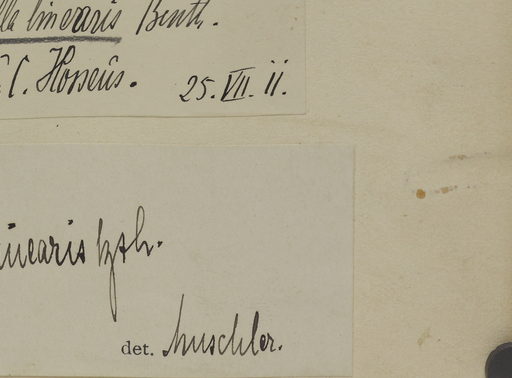 lla linearis Benth.
C. Hosseus. 25.VII.ii.
linearis Bth.
det. Muschler.